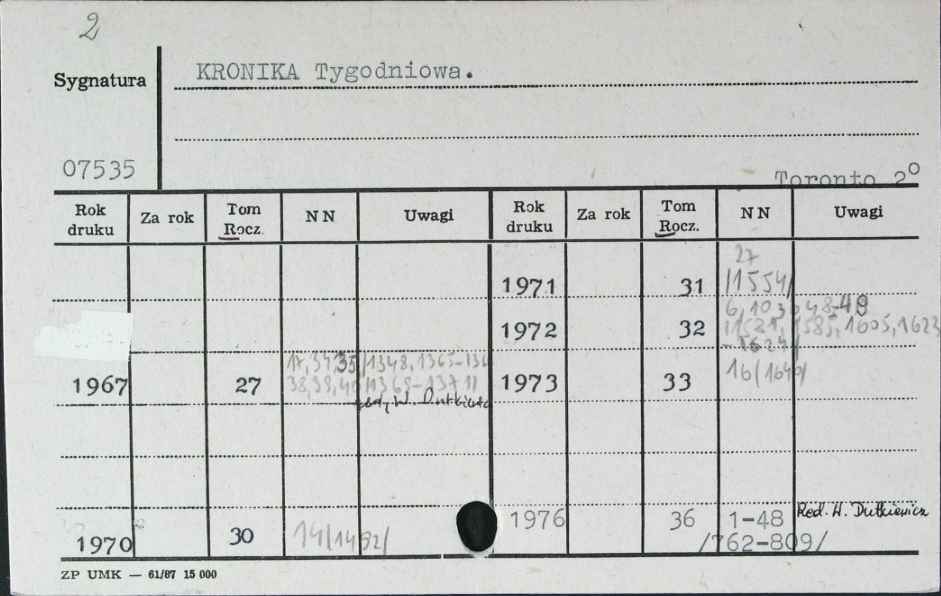 2
Sygnatura KRONIKA Tygodniowa.
07535
Toronto 2°
Rok druku Za rok Tom Rocz. NN Uwagi Rok druku Za rok Tom Rocz. NN Uwagi
1971 31 27 /1554/
1972 32 6, 10 48-49
1585, 1605, 1623
-1624/
1967 27 17, 34, 35 /1348, 1365-
38, 39, 40 /1369-1371/
W. Dutkiewicz
1973 33 16/1640/
1970 30 14/1492/
1976 36 1-48 Red. W. Dutkiewicz
/762-809/
ZP UMK — 61/87 15 000